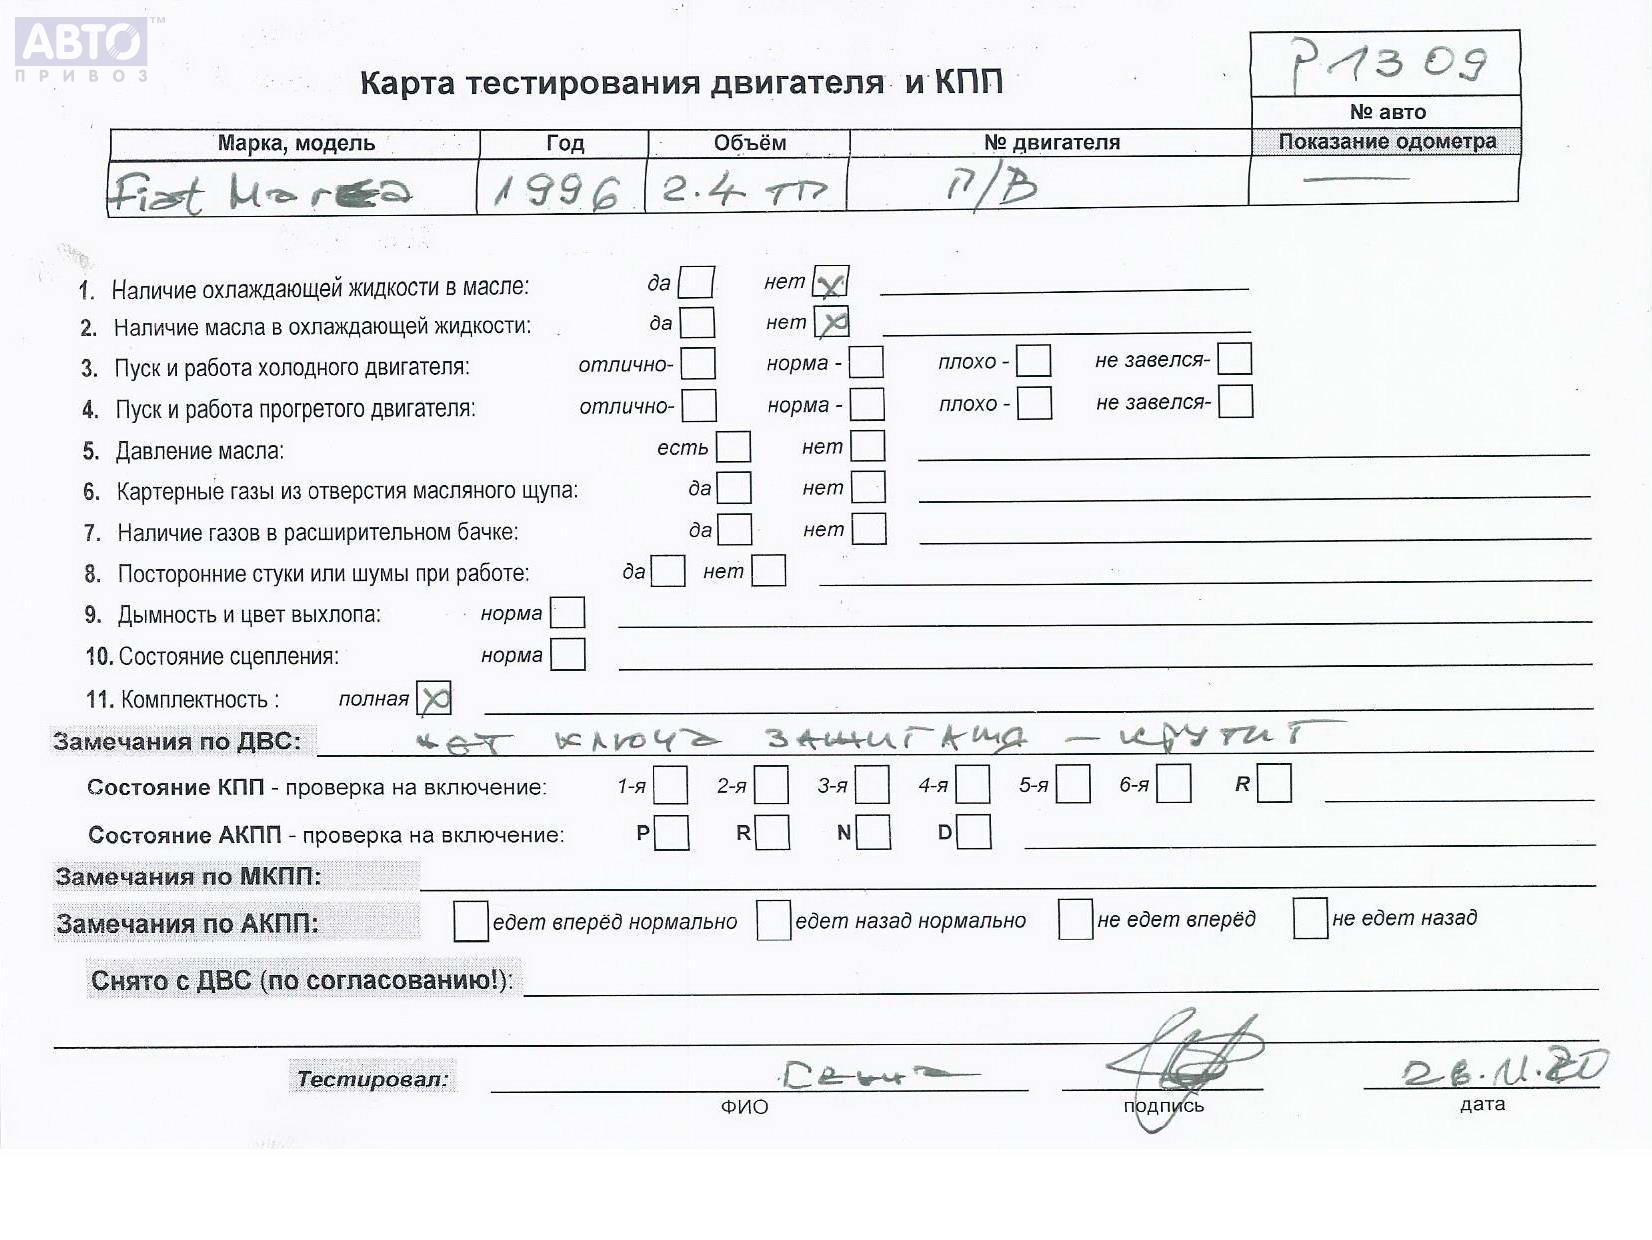 АВТО™
ПРИВОЗ
Р1309
Карта тестирования двигателя и КПП
№ авто
Марка, модель Год Объём № двигателя Показание одометра
Fiat Marea 1996 2.4 тд П/В —
1. Наличие охлаждающей жидкости в масле: да нет x
2. Наличие масла в охлаждающей жидкости: да нет x
3. Пуск и работа холодного двигателя: отлично- норма - плохо - не завелся-
4. Пуск и работа прогретого двигателя: отлично- норма - плохо - не завелся-
5. Давление масла: есть нет
6. Картерные газы из отверстия масляного щупа: да нет
7. Наличие газов в расширительном бачке: да нет
8. Посторонние стуки или шумы при работе: да нет
9. Дымность и цвет выхлопа: норма
10. Состояние сцепления: норма
11. Комплектность : полная x
Замечания по ДВС: нет ключа зажигания — крутит
Состояние КПП - проверка на включение: 1-я 2-я 3-я 4-я 5-я 6-я R
Состояние АКПП - проверка на включение: P R N D
Замечания по МКПП:
Замечания по АКПП: едет вперёд нормально едет назад нормально не едет вперёд не едет назад
Снято с ДВС (по согласованию!):
Тестировал:
ФИО подпись дата